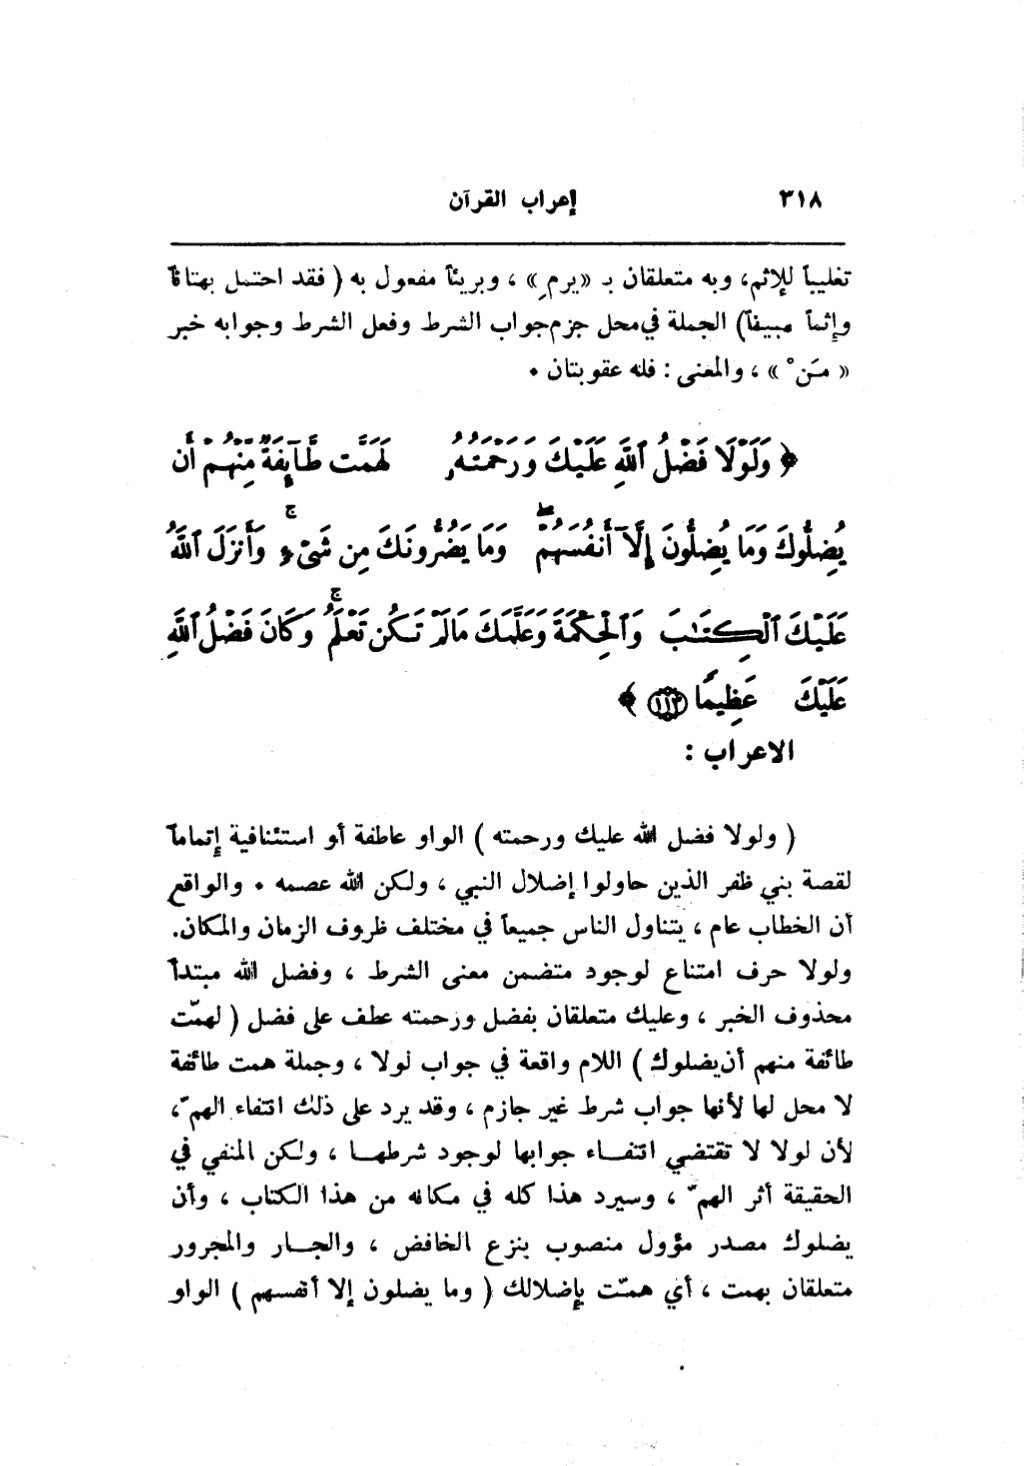 ٣١٨ إعراب القرآن
تغليباً للإثم، وبه متعلقان بـ «يرمِ» ، وبريئاً مفعول به ( فقد احتمل بهتاناً
وإثماً مبيناً) الجملة في محل جزم جواب الشرط وفعل الشرط وجوابه خبر
« مَنْ » ، والمعنى : فله عقوبتان .
﴿ وَلَوْلَا فَضْلُ ٱللَّهِ عَلَيْكَ وَرَحْمَتُهُۥ لَهَمَّت طَّآئِفَةٌ مِّنْهُمْ أَن
يُضِلُّوكَ وَمَا يُضِلُّونَ إِلَّآ أَنفُسَهُمْ ۖ وَمَا يَضُرُّونَكَ مِن شَىْءٍ ۚ وَأَنزَلَ ٱللَّهُ
عَلَيْكَ ٱلْكِتَـٰبَ وَٱلْحِكْمَةَ وَعَلَّمَكَ مَا لَمْ تَكُن تَعْلَمُ ۚ وَكَانَ فَضْلُ ٱللَّهِ
عَلَيْكَ عَظِيمًا ﴿١١٣﴾ ﴾
الاعراب :
( ولولا فضل الله عليك ورحمته ) الواو عاطفة أو استئنافية إتماماً
لقصة بني ظفر الذين حاولوا إضلال النبي ، ولكن الله عصمه . والواقع
أن الخطاب عام ، يتناول الناس جميعاً في مختلف ظروف الزمان والمكان.
ولولا حرف امتناع لوجود متضمن معنى الشرط ، وفضل الله مبتدأ
محذوف الخبر ، وعليك متعلقان بفضل ورحمته عطف على فضل ( لهمّت
طائفة منهم أن يضلوك ) اللام واقعة في جواب لولا ، وجملة همت طائفة
لا محل لها لأنها جواب شرط غير جازم ، وقد يرد على ذلك انتفاء الهمّ،
لأن لولا لا تقتضي انتفـــاء جوابها لوجود شرطهــا ، ولكن المنفي في
الحقيقة أثر الهمّ ، وسيرد هذا كله في مكانه من هذا الكتاب ، وأن
يضلوك مصدر مؤول منصوب بنزع الخافض ، والجــار والمجرور
متعلقان بهمت ، أي همّت بإضلالك ( وما يضلون إلا أنفسهم ) الواو